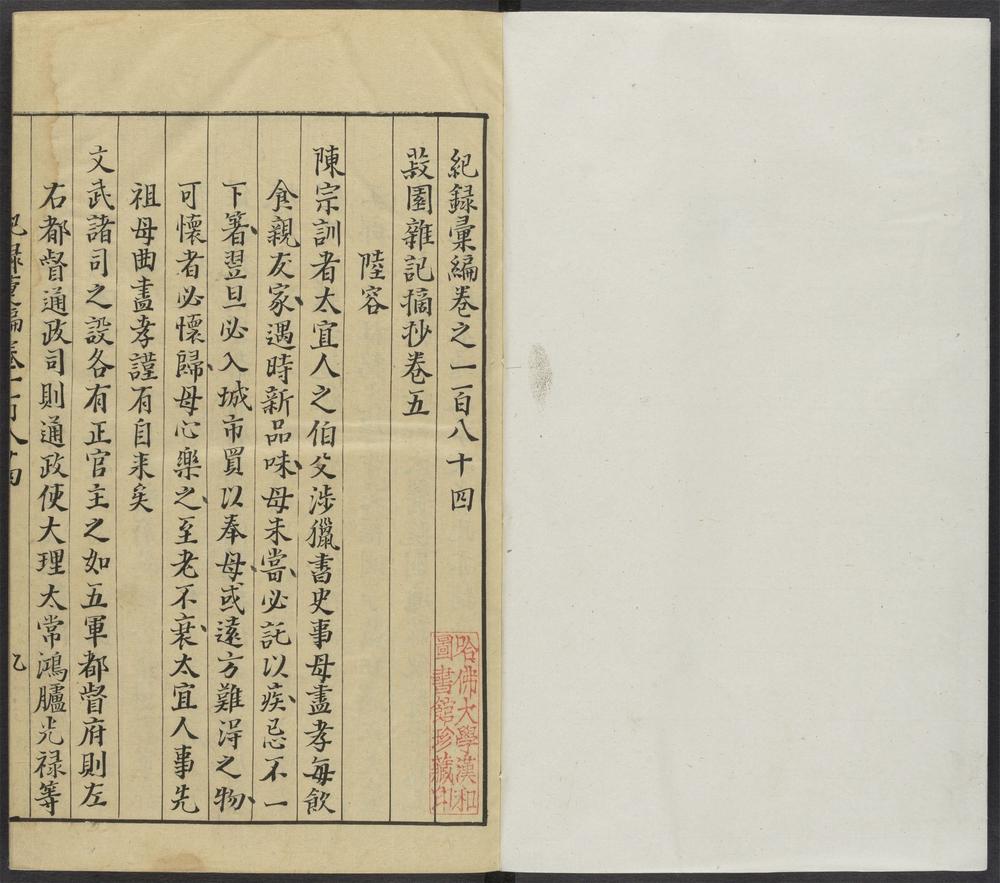 紀録彙編卷之一百八十四
菽園雜記摘抄卷五
陸容
陳宗訓者太宜人之伯父涉獵書史事母盡孝每飲
食親友家遇時新品味母未嘗必託以疾忌不一
下箸翌旦必入城市買以奉母或遠方難得之物
可懷者必懷歸母心樂之至老不衰太宜人事先
祖母曲盡孝謹有自来矣
文武諸司之設各有正官主之如五軍都督府則左
右都督通政司則通政使大理太常鴻臚光禄等
哈佛大學漢和
圖書館珍藏印